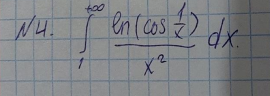 N4. \int_{1}^{+\infty} \frac{\ln(\cos\frac{1}{x})}{x^2} dx.